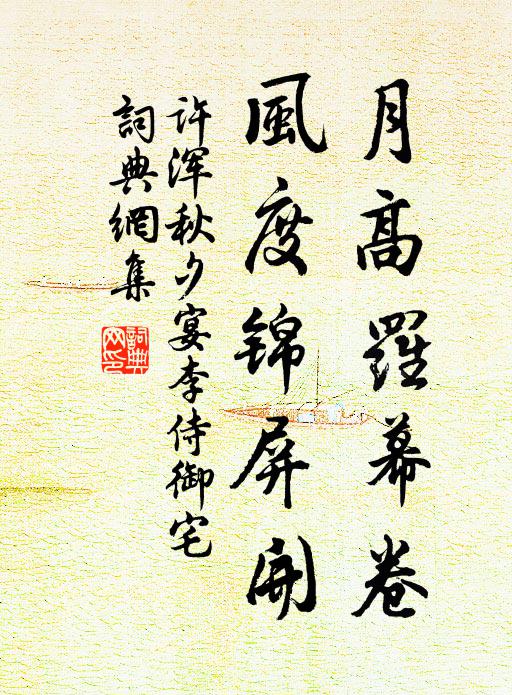 月高羅幕卷
風度錦屏開
许渾秋夕宴李侍御宅
詞典網集
詞典
网印